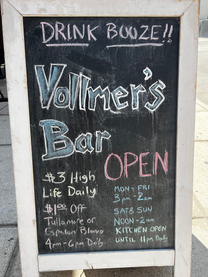 DRINK BOOZE!!
Vollmer's
Bar
OPEN
$3 High
Life Daily
$1.00 Off
Tullamore or
Espolon Blanco
4pm-6pm Daily
MON-FRI
3pm-2am
SAT & SUN
NOON-2am
KITCHEN OPEN
UNTIL 11pm Daily